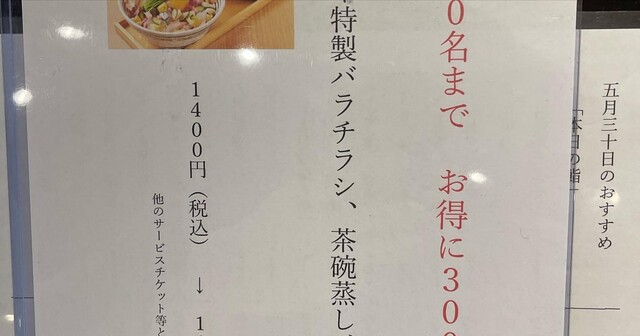 五月三十日のおすすめ
「本日の鮨」
0名まで お得に300
特製バラチラシ、茶碗蒸し、
1400円（税込） ↓ 1
他のサービスチケット等と